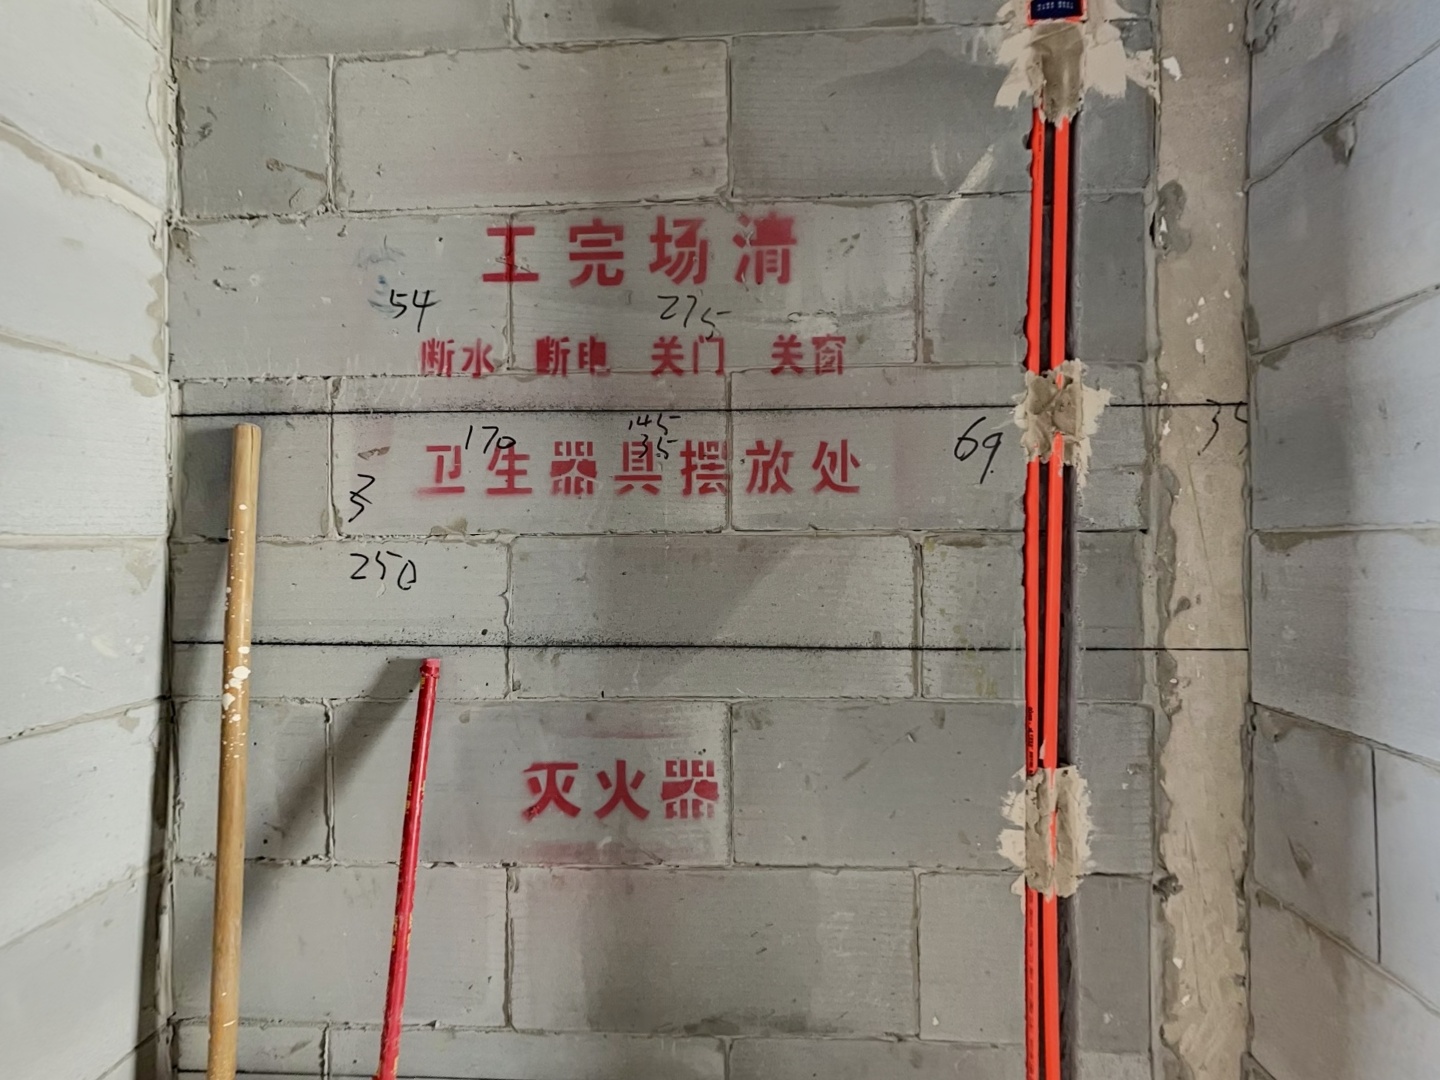 工完场清
54 275
断水 断电 关门 关窗
145
170 35 69 35
卫生器具摆放处
250
灭火器